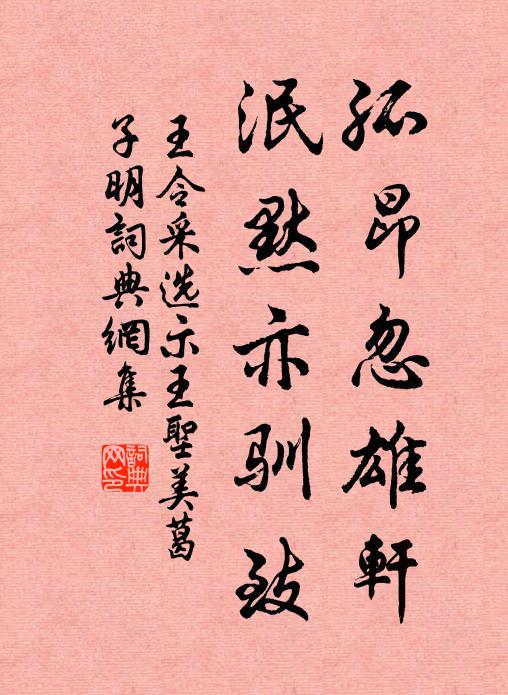 孤昂忽雄軒
泯默亦馴致
王令采选示王聖美葛
子明詞典網集
詞典网印